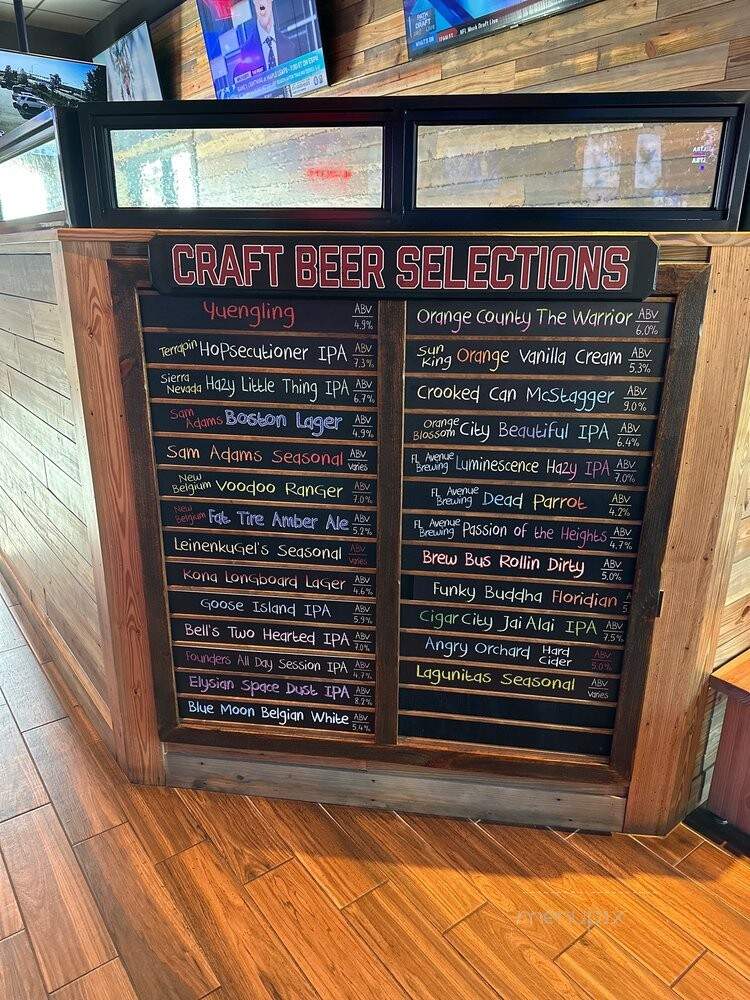 CRAFT BEER SELECTIONS
Yuengling ABV 4.9%
Terrapin Hopsecutioner IPA ABV 7.3%
Sierra Nevada Hazy Little Thing IPA ABV 6.7%
Sam Adams Boston Lager ABV 4.9%
Sam Adams Seasonal ABV varies
New Belgium Voodoo Ranger ABV 7.0%
New Belgium Fat Tire Amber Ale ABV 5.2%
Leinenkugel's Seasonal ABV varies
Kona Longboard Lager ABV 4.6%
Goose Island IPA ABV 5.9%
Bell's Two Hearted IPA ABV 7.0%
Founders All Day Session IPA ABV 4.7%
Elysian Space Dust IPA ABV 8.2%
Blue Moon Belgian White ABV 5.4%
Orange County The Warrior ABV 6.0%
Sun King Orange Vanilla Cream ABV 5.3%
Crooked Can McStagger ABV 9.0%
Orange Blossom City Beautiful IPA ABV 6.4%
FL Avenue Brewing Luminescence Hazy IPA ABV 7.0%
FL Avenue Brewing Dead Parrot ABV 4.2%
FL Avenue Brewing Passion of the Heights ABV 4.7%
Brew Bus Rollin Dirty ABV 5.0%
Funky Buddha Floridian 5
Cigar City Jai Alai IPA ABV 7.5%
Angry Orchard Hard Cider ABV 5.0%
Lagunitas Seasonal ABV varies
menupix